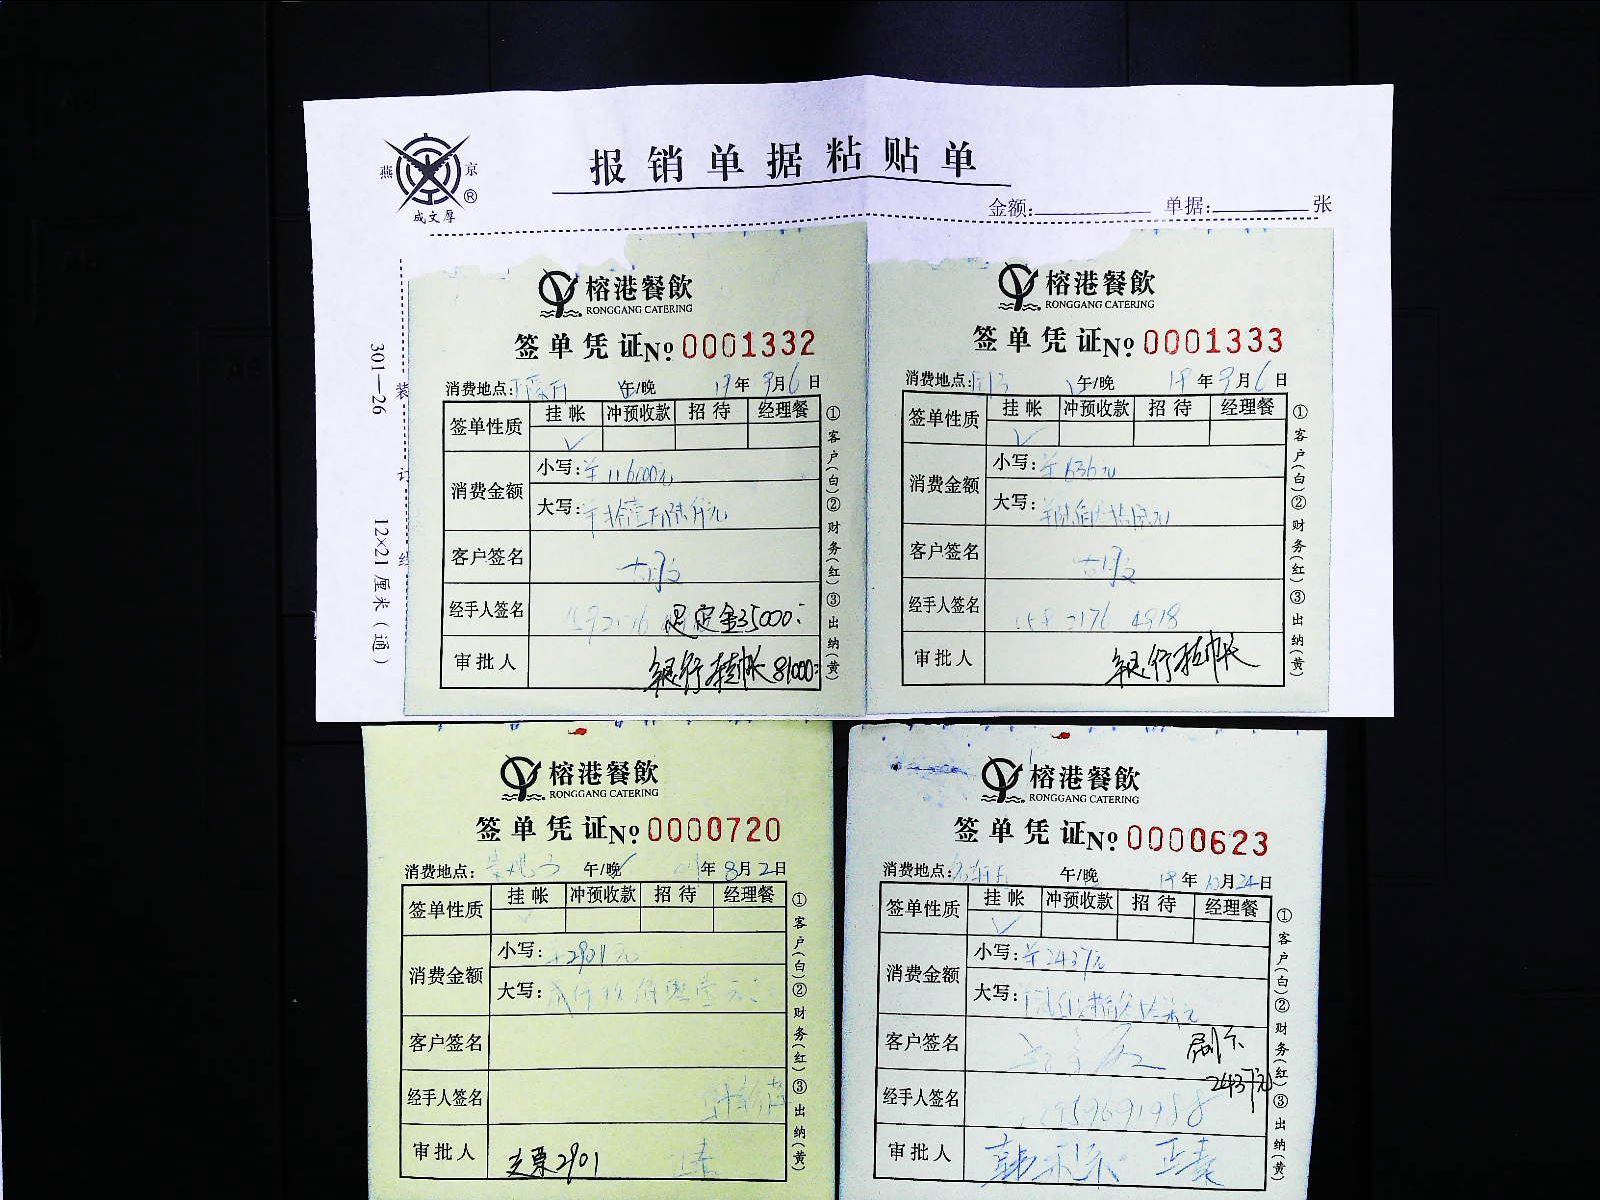 报销单据粘贴单
燕京
®
成文厚
金额: 单据: 张
301—26
12×21厘米(通)
装订线
榕港餐飲
RONGGANG CATERING
签单凭证No 0001332
消费地点: 午/晚 年9月6日
签单性质 挂帐 冲预收款 招待 经理餐
✓
消费金额 小写:¥116000元
大写:
客户签名
经手人签名 定金35000
审批人 银行挂帐81000
①客户(白)②财务(红)③出纳(黄)
榕港餐飲
RONGGANG CATERING
签单凭证No 0001333
消费地点: 午/晚 年9月6日
签单性质 挂帐 冲预收款 招待 经理餐
✓
消费金额 小写:¥636元
大写:
客户签名
经手人签名 4918
审批人 银行挂帐
①客户(白)②财务(红)③出纳(黄)
榕港餐飲
RONGGANG CATERING
签单凭证No 0000720
消费地点: 午/晚 年8月2日
签单性质 挂帐 冲预收款 招待 经理餐
消费金额 小写:2901元
大写:
客户签名
经手人签名
审批人 支票2901
①客户(白)②财务(红)③出纳(黄)
榕港餐飲
RONGGANG CATERING
签单凭证No 0000623
消费地点: 午/晚 年10月24日
签单性质 挂帐 冲预收款 招待 经理餐
✓
消费金额 小写:¥2437元
大写:
客户签名 刷卡
2437元
经手人签名
审批人
①客户(白)②财务(红)③出纳(黄)